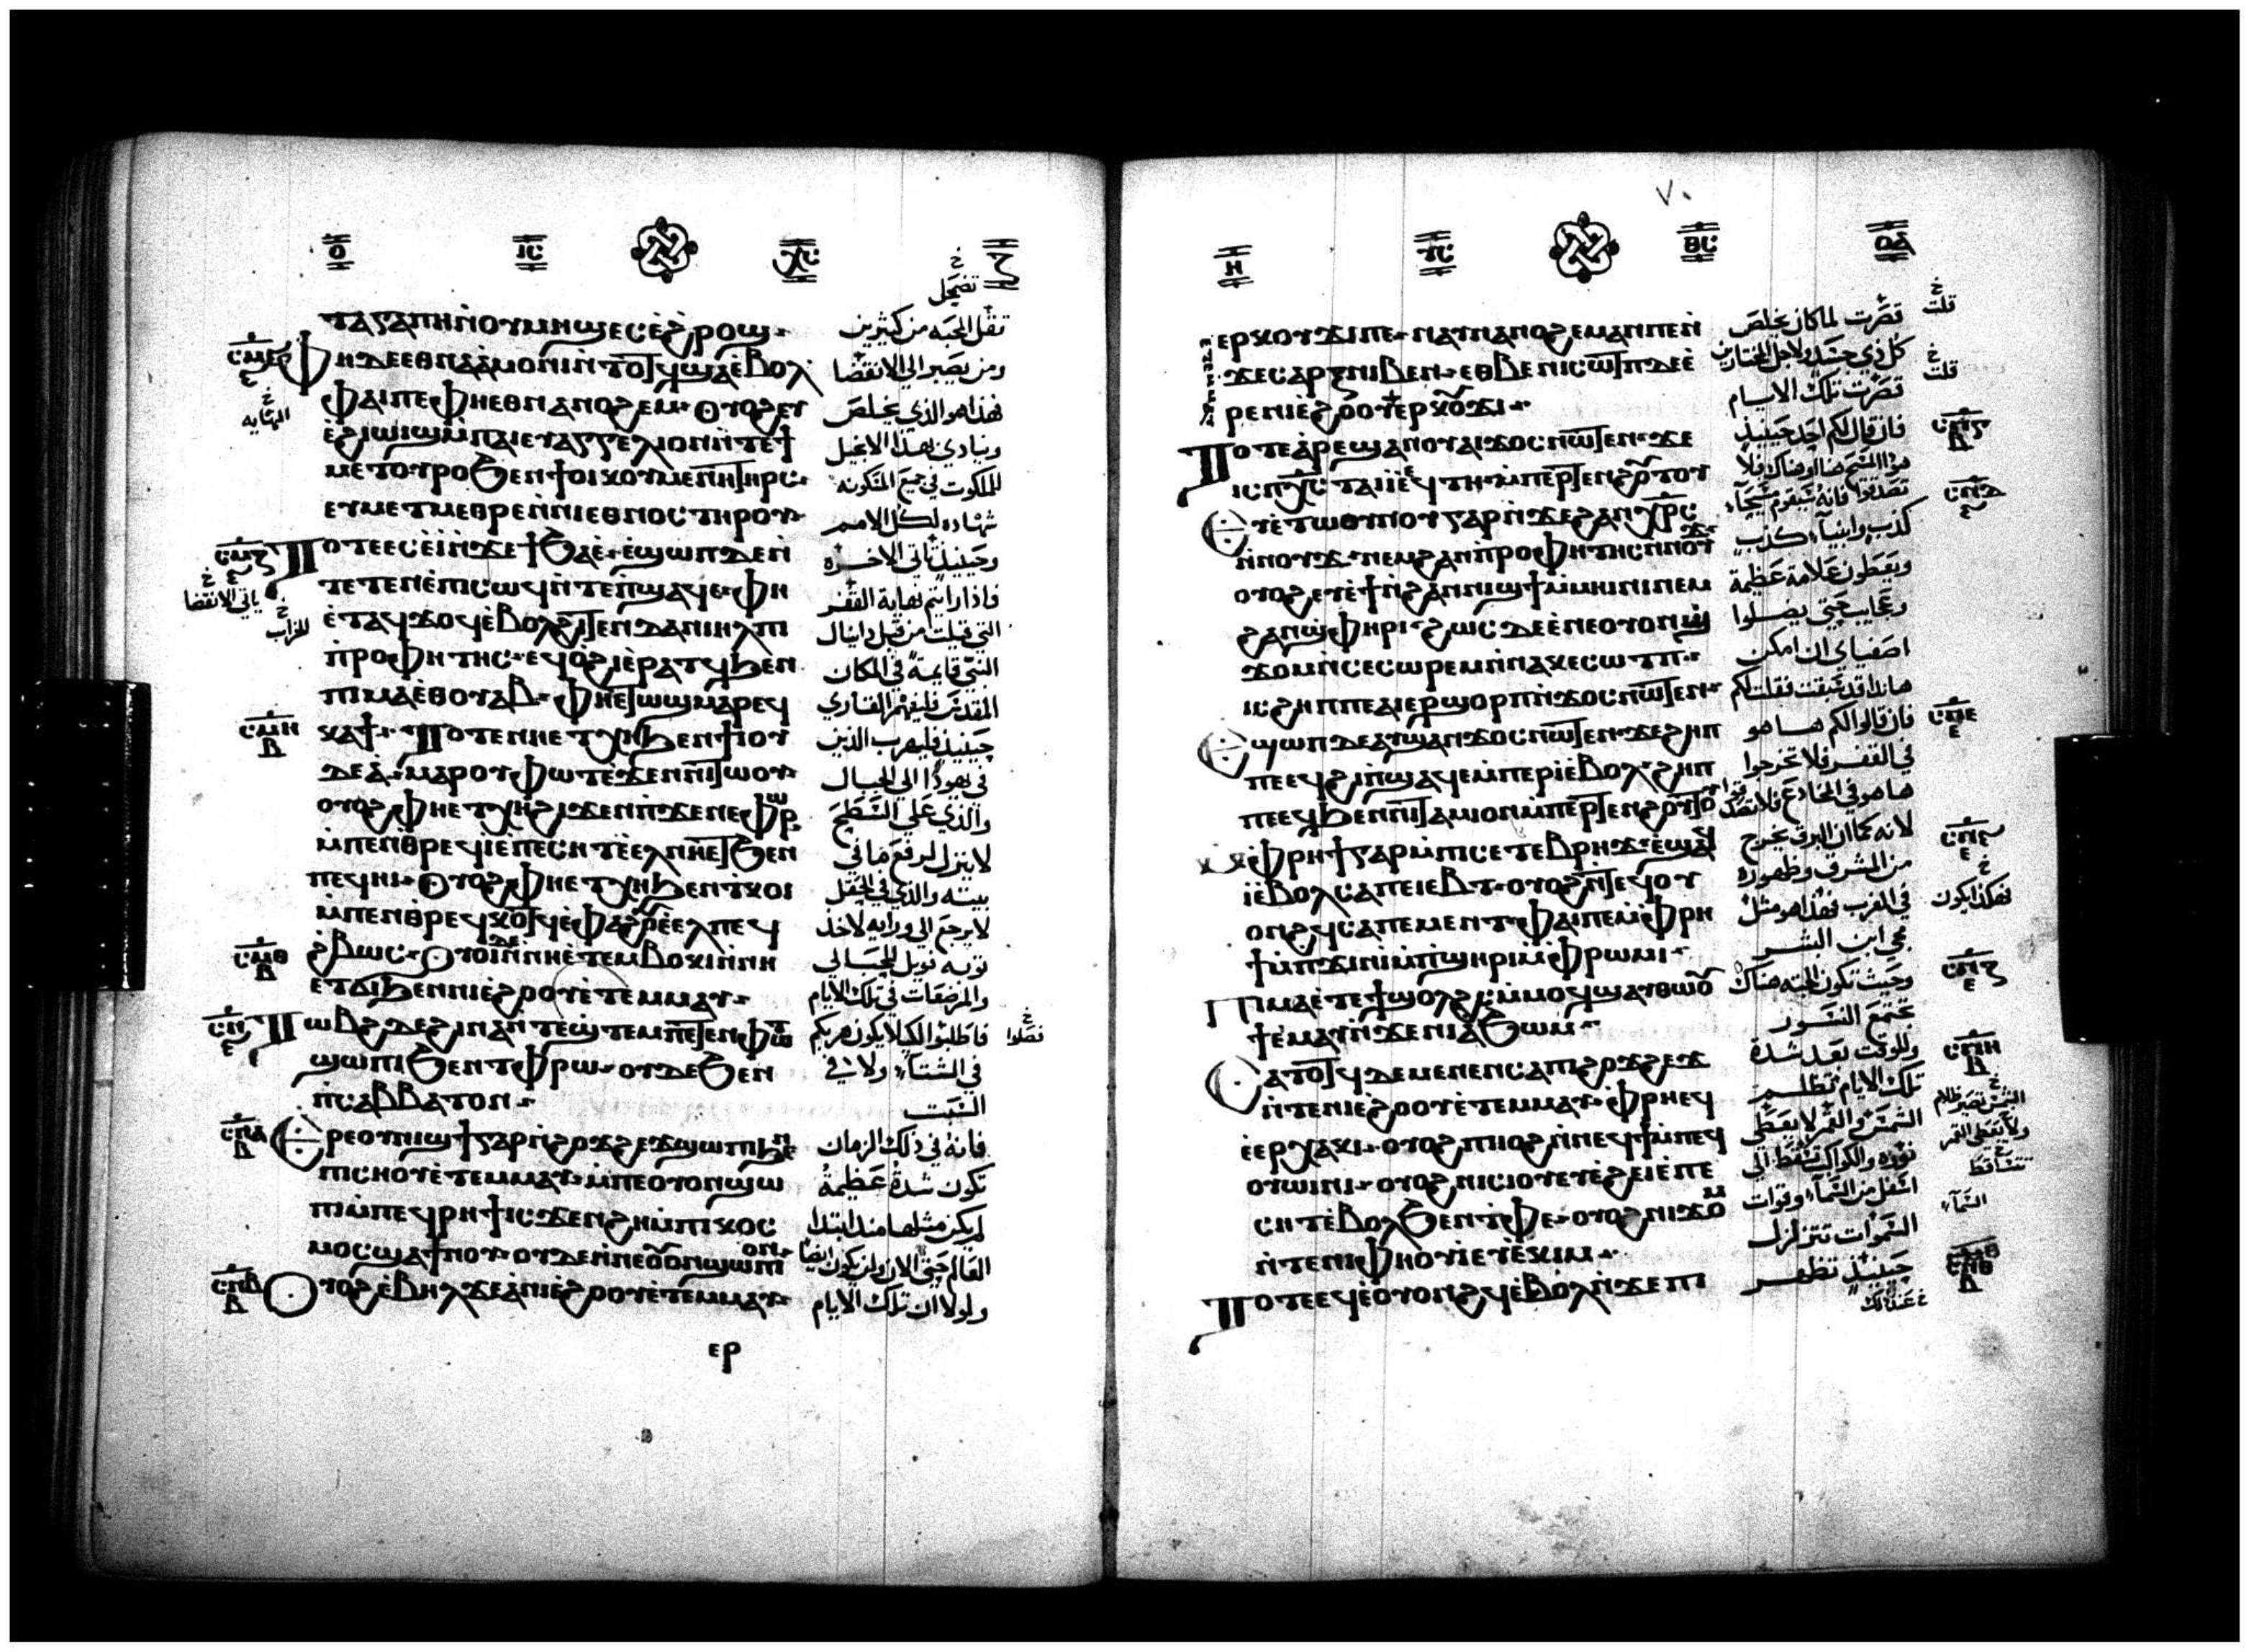 ⲟ̄ ⲓ̅ⲥ̅ ⲭ̅ⲥ̅
ⲧⲁⲅⲁⲡⲏⲛ̀ⲟⲩⲙⲏϣ ⲉⲥⲉ̀ϩⲣⲟϣ
ⲫⲏⲇⲉ ⲉⲑⲛⲁⲁ̀ⲙⲟⲛⲓ ⲛ̀ⲧⲟⲧϥ ϣⲁⲉ̀ⲃⲟⲗ
ⲫⲁⲓⲡⲉ ⲫⲏⲉⲑⲛⲁⲛⲟϩⲉⲙ ⲟⲩⲟϩ ⲉⲩ
ⲉ̀ϩⲓⲱⲓϣ ⲙ̀ⲡⲁⲓⲉⲩⲁⲅⲅⲉⲗⲓⲟⲛ ⲛ̀ⲧⲉϯ
ⲙⲉⲧⲟⲩⲣⲟ ϧⲉⲛϯⲟⲓⲕⲟⲩⲙⲉⲛⲏ ⲧⲏⲣⲥ
ⲉⲩⲙⲉⲧⲙⲉⲑⲣⲉ ⲛ̀ⲛⲓⲉⲑⲛⲟⲥ ⲧⲏⲣⲟⲩ
ⲧⲟⲧⲉ ⲉⲥⲉ̀ⲓ̀ ⲛ̀ϫⲉϯϧⲁⲉ̀ ⲉ̀ϣⲱⲡ ⲇⲉⲛ̀
ⲧⲉⲧⲉⲛⲉ̀ⲡⲓⲥⲱϥ ⲛ̀ⲧⲉⲡ̀ϣⲁϥⲉ ⲫⲏ
ⲉ̀ⲧⲁϥϫⲟϥ ⲉ̀ⲃⲟⲗϩⲓⲧⲉⲛ ⲇⲁⲛⲓⲏⲗ ⲡⲓ
ⲡ̀ⲣⲟⲫⲏⲧⲏⲥ ⲉϥⲟ̀ϩⲓ ⲉ̀ⲣⲁⲧϥ ϧⲉⲛ
ⲡⲓⲙⲁ ⲉ̀ⲑⲟⲩⲁⲃ ⲫⲏⲉⲧⲱϣ ⲙⲁⲣⲉϥ
ⲕⲁϯ ⲧⲟⲧⲉ ⲛⲏⲉⲧⲭⲏ ϧⲉⲛϯⲓⲟⲩ
ⲇⲉⲁ̀ ⲙⲁⲣⲟⲩⲫⲱⲧ ⲉ̀ϫⲉⲛⲛⲓⲧⲱⲟⲩ
ⲟⲩⲟϩ ⲫⲏⲉⲧⲭⲏ ϩⲓϫⲉⲛ ⲡ̀ϫⲉⲛⲉⲫⲱⲣ
ⲙ̀ⲡⲉⲛⲑ̀ⲣⲉϥⲓ̀ ⲉ̀ⲡⲉⲥⲏⲧ ⲉ̀ⲉⲗ ⲛⲏⲉⲧϧⲉⲛ
ⲡⲉϥⲏⲓ ⲟⲩⲟϩ ⲫⲏⲉⲧⲭⲏ ϧⲉⲛⲧ̀ⲕⲟⲓ
ⲙ̀ⲡⲉⲛⲑ̀ⲣⲉϥⲕⲟⲧϥ ⲉ̀ⲫⲁϩⲟⲩ ⲉ̀ⲉⲗ ⲡⲉϥ
ϩ̀ⲃⲱⲥ ⲟⲩⲟⲓ ⲇⲉ ⲛ̀ⲛⲏⲉ̀ⲧⲉⲙⲃⲟⲕⲓ ⲛ̀ⲛⲏ
ⲉⲧϭⲓ ϧⲉⲛⲛⲓⲉ̀ϩⲟⲟⲩ ⲉ̀ⲧⲉⲙⲙⲁⲩ
ⲧⲱⲃϩ ⲇⲉ ϩⲓⲛⲁ ⲛ̀ⲧⲉϣ̀ⲧⲉⲙ ⲡⲉⲧⲉⲛⲫⲱⲧ
ϣⲱⲡⲓ ϧⲉⲛⲧ̀ⲫⲣⲱ ⲟⲩⲇⲉ ϧⲉⲛ
ⲡ̀ⲥⲁⲃⲃⲁⲧⲟⲛ
ⲉⲣⲉ ⲟⲩⲛⲓϣϯ ⲅⲁⲣ ⲛ̀ϩⲟϫϩⲉϫ ϣⲱⲡⲓ ϧⲉⲛ
ⲡⲓⲥⲏⲟⲩ ⲉ̀ⲧⲉⲙⲙⲁⲩ ⲙ̀ⲡⲉⲟⲩⲟⲛ ϣⲱ
ⲡⲓ ⲙ̀ⲡⲉϥⲣⲏϯ ⲓⲥϫⲉⲛ ϩⲏ ⲙ̀ⲡⲓⲕⲟⲥ
ⲙⲟⲥ ϣⲁϯⲛⲟⲩ ⲟⲩⲇⲉ ⲛ̀ⲛⲉⲟⲩⲟⲛ ϣⲱⲡⲓ ⲟⲛ
ⲟⲩⲟϩ ⲉ̀ⲃⲏⲗ ϫⲉ ⲁ̀ⲛⲓⲉ̀ϩⲟⲟⲩ ⲉ̀ⲧⲉⲙⲙⲁⲩ
ⲉⲣ
تقل المحبه من كثيرين
ومن يصبر الي الانقضا
فهذا هو الذي يخلص
وينادي بهذا الانجيل
الملكوت في جميع المسكونه
شهاده لكل الامم
وحينيذ تاتي الاخره
فاذا رايتم نهاية القفر
التي قيلت من قبل دانيال
النبي قايمة في المكان
المقدس فليفهم القاري
حينيذ فليهرب الذين
في يهوذا الي الجبال
والذي علي السطح
لا ينزل ليرفع ما في
بيته والذي في الحقل
لا يرجع الي ورايه لاخذ
ثوبه الويل للحبالي
والمرضعات في تلك الايام
فاطلبوا الكيلا يكون هربكم
في الشتاء ولا في
السبت
فانه في ذلك الزمان
تكون شدة عظيمة
لم يكن مثلها منذ ابتدا
العالم حتي الان ولن يكون ايضا
ولولا ان تلك الايام
ⲏ̄ ⲩ̅ⲥ̅ ⲑ̅ⲥ̅ ⲟ̅ⲁ̅
٧٠
ⲉⲣⲕⲟⲩϫⲓ ⲡⲉ ⲛⲁⲩⲛⲁⲛⲟϩⲉⲙ ⲁⲛ ⲡⲉ ⲛ̀
ϫⲉⲥⲁⲣⲝ ⲛⲓⲃⲉⲛ ⲉⲑⲃⲉ ⲛⲓⲥⲱⲧⲡ ⲇⲉ ⲉ̀
ⲣⲉ ⲛⲓⲉ̀ϩⲟⲟⲩ ⲉⲣⲕⲟⲩϫⲓ
ⲉⲧⲉⲙⲙⲁⲩ
ⲧⲟⲧⲉ ⲁ̀ⲣⲉϣⲁⲛ ⲟⲩⲁⲓ ϫⲟⲥ ⲛⲱⲧⲉⲛ ϫⲉ
ⲓⲥ ⲡ̅ⲭ̅ⲥ̅ ⲧⲁⲓ ⲓⲉ ϥⲧⲏ ⲙ̀ⲡⲉⲣⲧⲉⲛϩⲟⲩⲧⲟⲩ
ⲉⲩⲉ̀ⲧⲱⲟⲩⲛⲟⲩ ⲅⲁⲣ ⲛ̀ϫⲉϩⲁⲛⲭⲣⲥ
ⲛ̀ⲛⲟⲩϫ ⲛⲉⲙ ϩⲁⲛⲡ̀ⲣⲟⲫⲏⲧⲏⲥ ⲛ̀ⲛⲟⲩϫ
ⲟⲩⲟϩ ⲉⲩⲉ̀ϯ ⲛ̀ϩⲁⲛⲛⲓϣϯ ⲙ̀ⲙⲏⲓⲛⲓ ⲛⲉⲙ
ϩⲁⲛϣ̀ⲫⲏⲣⲓ ϩⲱⲥⲇⲉ ⲉ̀ⲛⲉ ⲟⲩⲟⲛϣ̀
ϫⲟⲙ ⲛ̀ⲥⲉⲥⲱⲣⲉⲙ ⲛ̀ⲛⲁⲕⲉⲥⲱⲧⲡ
ⲓⲥ ϩⲏⲡⲡⲉ ⲁⲓⲉⲣϣⲟⲣⲡ ⲛ̀ϫⲟⲥ ⲛⲱⲧⲉⲛ
ⲉϣⲱⲡ ⲇⲉ ⲁⲩϣⲁⲛϫⲟⲥ ⲛⲱⲧⲉⲛ ϫⲉ ϩⲏⲡ
ⲡⲉ ⲉϥϩⲓ ⲡ̀ϣⲁϥⲉ ⲙ̀ⲡⲉⲣⲓ̀ ⲉ̀ⲃⲟⲗ ϩⲏⲡ
ⲡⲉ ⲉϥϧⲉⲛ ⲛⲓⲧⲁⲙⲓⲟⲛ ⲙ̀ⲡⲉⲣⲧⲉⲛϩⲟⲩⲧⲟⲩ
ⲙ̀ⲫⲣⲏϯ ⲅⲁⲣ ⲙ̀ⲡⲓⲥⲉⲧⲉⲃⲣⲏϫ ⲉ̀ϣⲁϥ
ⲓ̀ ⲉ̀ⲃⲟⲗ ⲥⲁⲡⲉⲓⲉⲃⲧ ⲟⲩⲟϩ ⲛ̀ⲧⲉϥⲟⲩ
ⲟⲛϩϥ ⲥⲁⲡⲉⲙⲉⲛⲧ ⲫⲁⲓⲡⲉ ⲙ̀ⲫⲣⲏ
ϯ ⲙ̀ⲡϫⲓⲛⲓ̀ ⲙ̀ⲡ̀ϣⲏⲣⲓ ⲙ̀ⲫⲣⲱⲙⲓ
ⲡⲓⲙⲁ ⲉ̀ⲧⲉ ϯϣⲟⲗϩⲥ ⲙ̀ⲙⲟϥ ϣⲁⲩⲑⲱⲟⲩ
ϯ ⲉ̀ⲙⲁⲩ ⲛ̀ϫⲉⲛⲓⲁ̀ϧⲱⲙ
ⲥⲁⲧⲟⲧϥ ⲇⲉ ⲙⲉⲛⲉⲛⲥⲁ ⲡⲓϩⲟϫϩⲉϫ
ⲛ̀ⲧⲉⲛⲓⲉ̀ϩⲟⲟⲩ ⲉ̀ⲧⲉⲙⲙⲁⲩ ⲫⲣⲏ ⲉϥ
ⲉ̀ⲉⲣⲭⲁⲕⲓ ⲟⲩⲟϩ ⲡⲓⲓⲟϩ ⲛ̀ⲛⲉϥϯ ⲙ̀ⲡⲉϥ
ⲟⲩⲱⲓⲛⲓ ⲟⲩⲟϩ ⲛⲓⲥⲓⲟⲩ ⲉⲩⲉ̀ϩⲉⲓ ⲉ̀ⲡⲉ
ⲥⲏⲧ ⲉ̀ⲃⲟⲗϧⲉⲛ ⲧ̀ⲫⲉ ⲟⲩⲟϩ ⲛⲓϫⲟⲙ
ⲛ̀ⲧⲉⲛⲓⲫⲏⲟⲩⲓ̀ ⲉⲩⲉ̀ⲕⲓⲙ
ⲧⲟⲧⲉ ⲉϥⲉ̀ⲟⲩⲟⲛϩϥ ⲉ̀ⲃⲟⲗ ⲛ̀ϫⲉⲡⲓ
قصرت لما كان يخلص
كل ذي جسد ولاجل المختارين
قصرت تلك الايام
فان قال لكم احد حينيذ
هوذا المسيح هنا او هناك فلا
تصدقوا فانه سيقوم مسحاء
كذب وانبياء كذب
ويعطون علامة عظيمة
وعجايب حتي يضلوا
اصفياي ان امكن
هانذا قد سبقت فقلت لكم
فان قالوا لكم ها هو
في القفر فلا تخرجوا
ها هو في المخادع فلا تصدقوا
لانه كما ان البرق يخرج
من المشرق وظهوره
في المغرب فهذا هو مثل
مجي ابن البشر
وحيث تكون الجثه هناك
تجتمع النسور
وللوقت بعد شدة
تلك الايام تظلم
الشمس والقمر لا يعطي
نوره والكواكب تسقط الي
اسفل من السماء وقوات
السموات تتزلزل
حينيذ تظهر